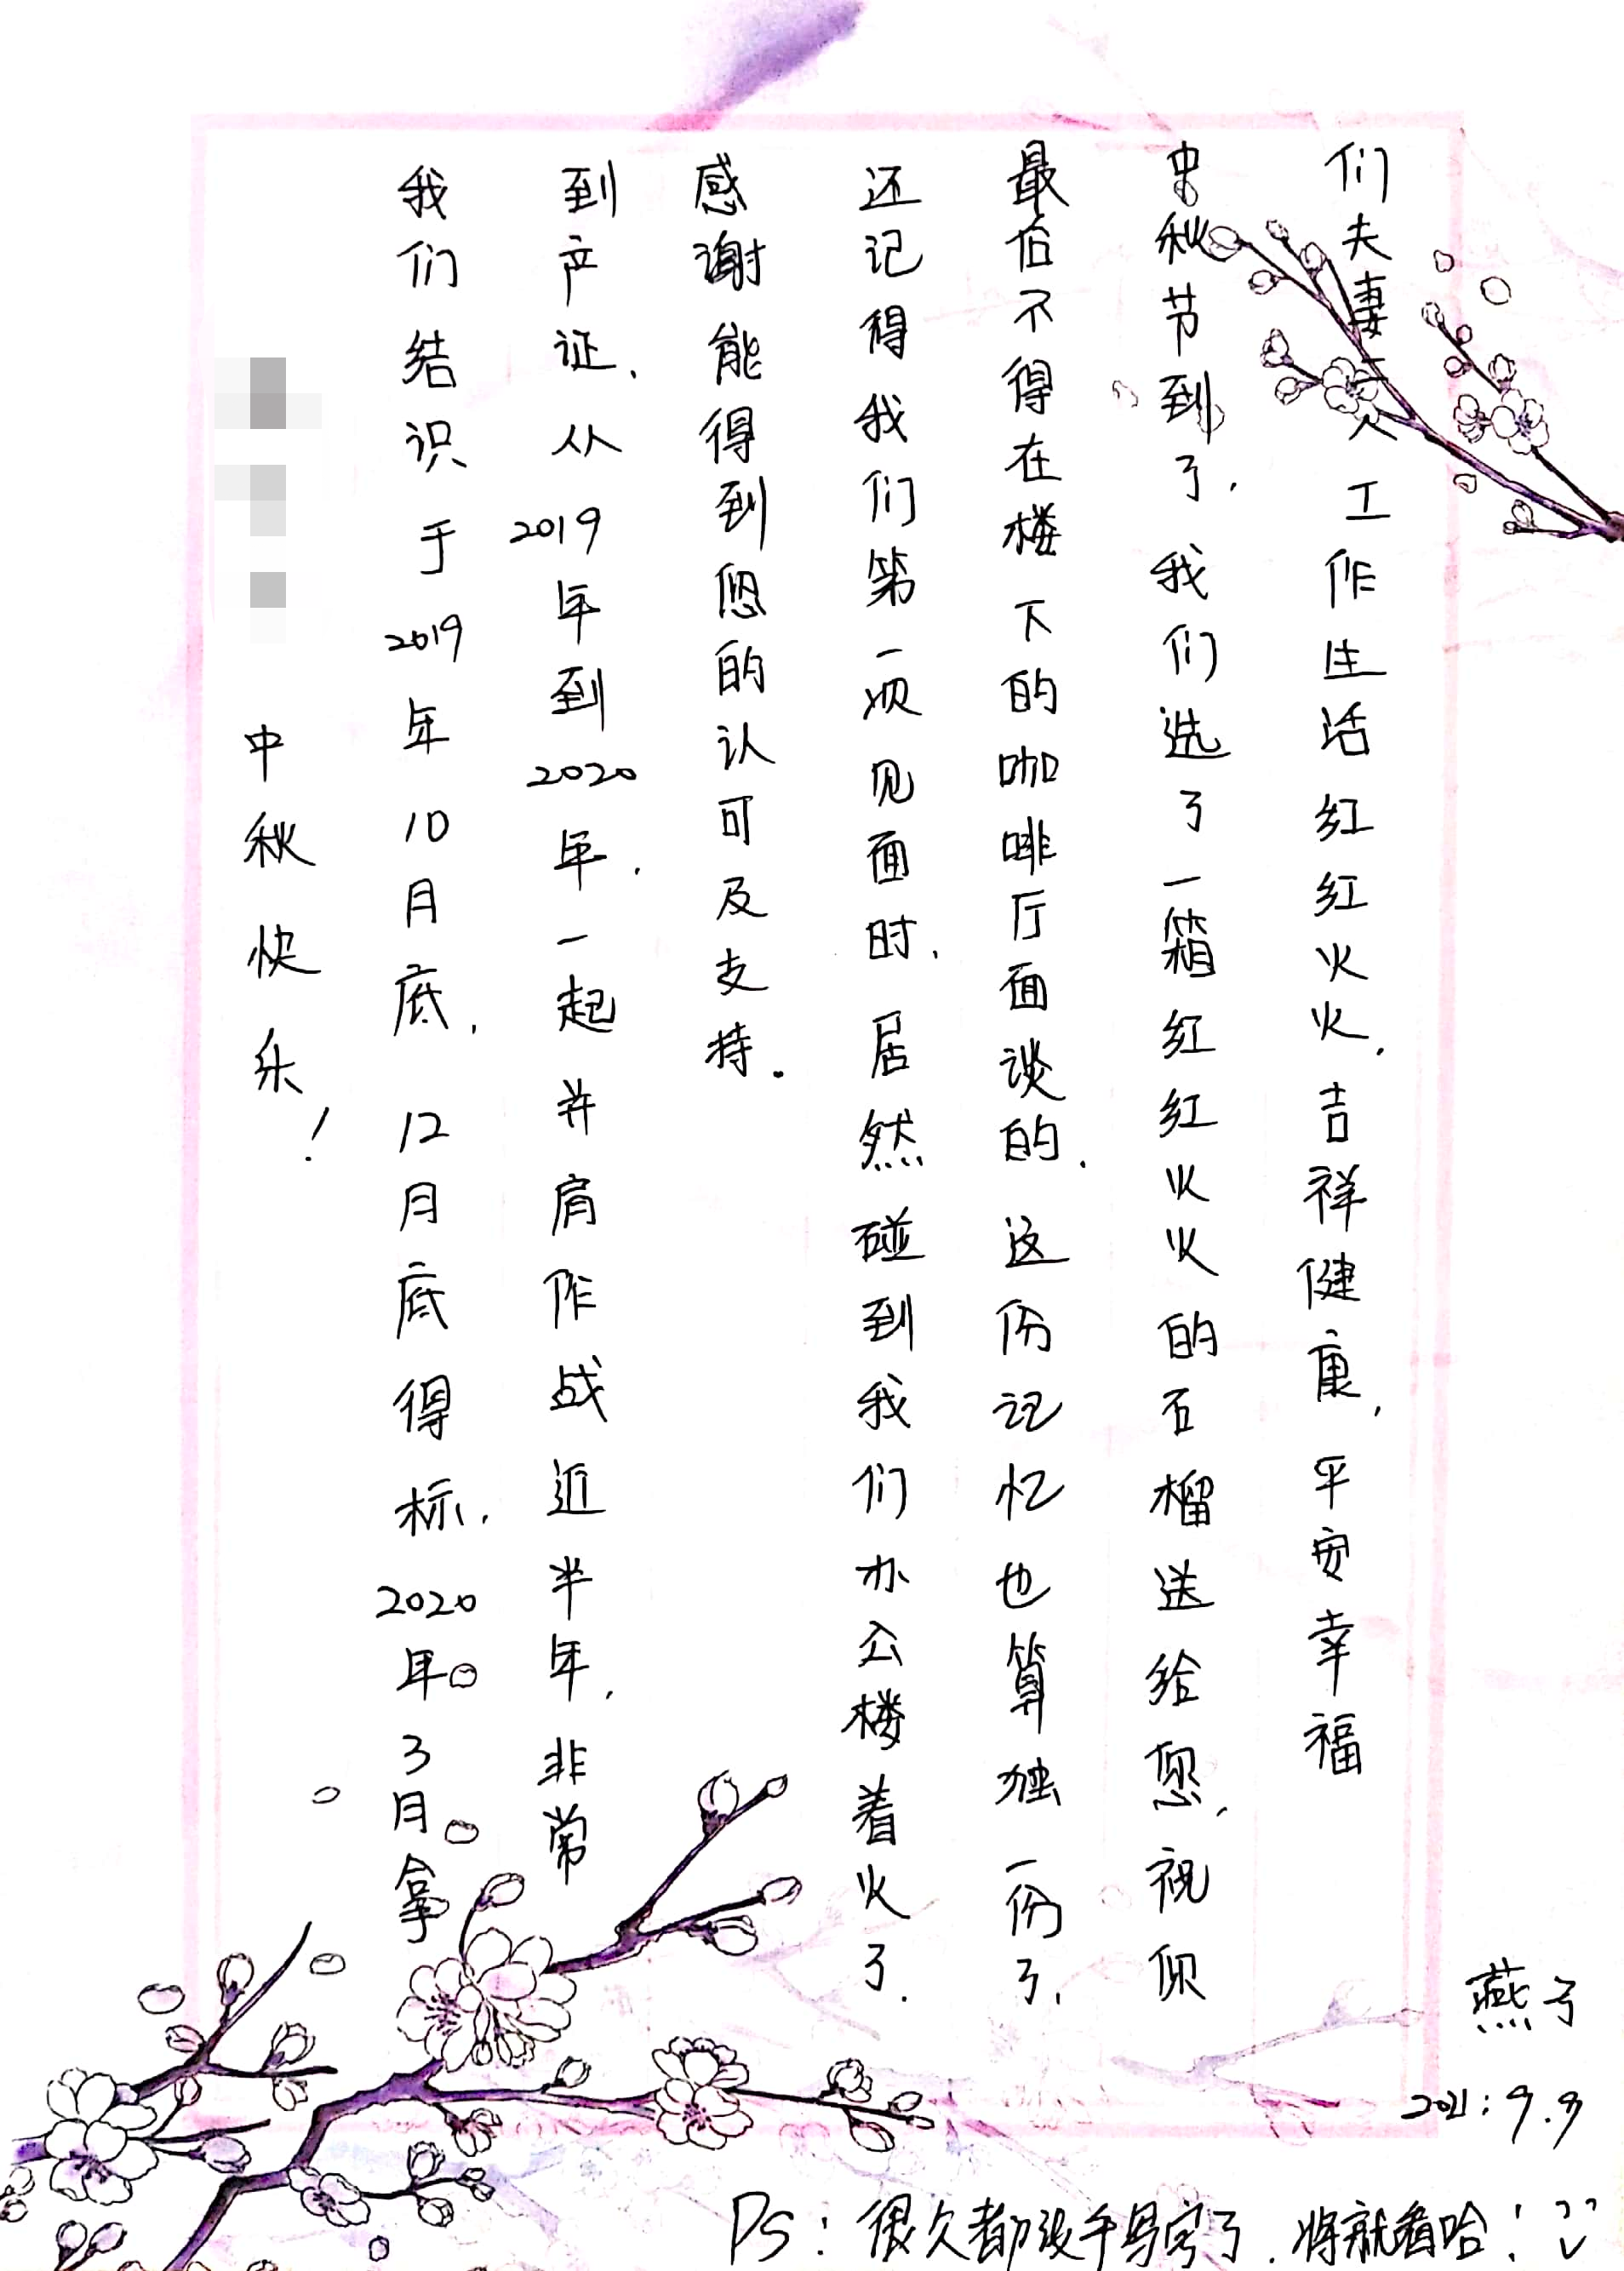 中秋快乐！
我们结识于2019年10月底，12月底得标，2020年3月拿
到产证，从2019年到2020年，一起并肩作战近半年，非常
感谢能得到您的认可及支持。
还记得我们第一次见面时，居然碰到我们办公楼着火了.
最后不得在楼下的咖啡厅面谈的，这份记忆也算独一份了，
中秋节到了，我们选了一箱红红火火的石榴送给您，祝你
们夫妻二人工作生活红红火火，吉祥健康，平安幸福
燕子
2021:9.9
PS：很久都没手写字了，将就看哈！